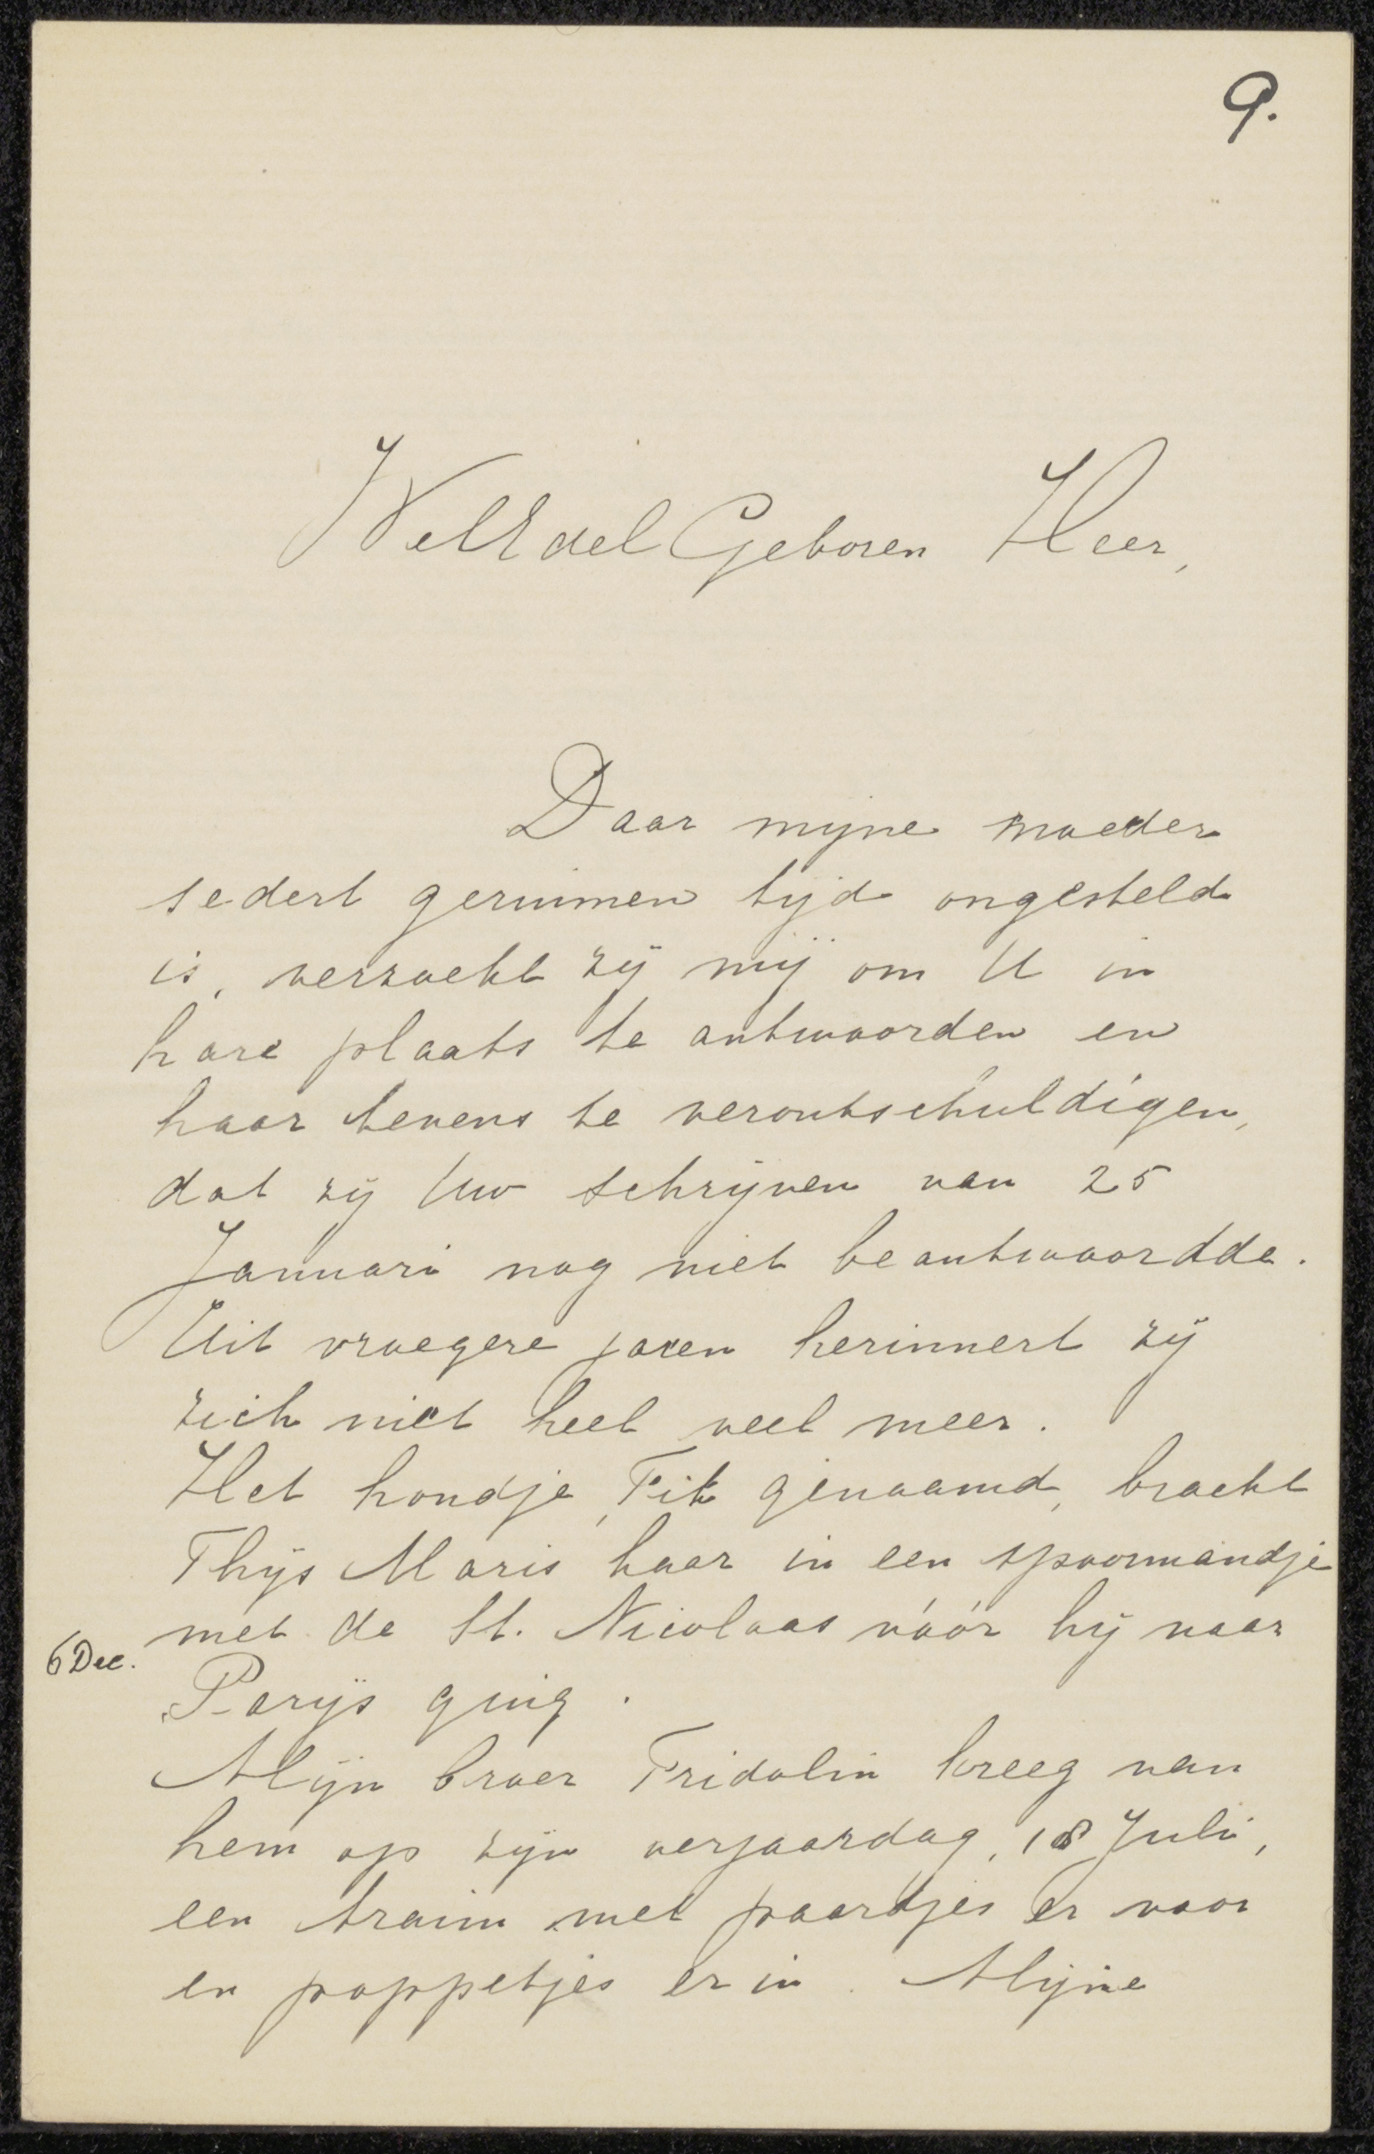 9.
WelEdelGeboren Heer,
Daar mijne moeder
sedert geruimen tijd ongesteld
is, verzocht zij mij om U in
hare plaats te antwoorden en
haar tevens te verontschuldigen,
dat zij Uw schrijven van 25
Januari nog niet beantwoordde.
Uit vroegere jaren herinnert zij
zich niet heel veel meer.
Het hondje, Fik genaamd, bracht
Thijs Maris haar in een spoormandje
met de St. Nicolaas vóór hij naar
6 Dec.
Parijs ging.
Mijn broer Fridolin kreeg van
hem op zijn verjaardag, 18 Juli,
een traim met paardjes er voor
en poppetjes er in. Mijne